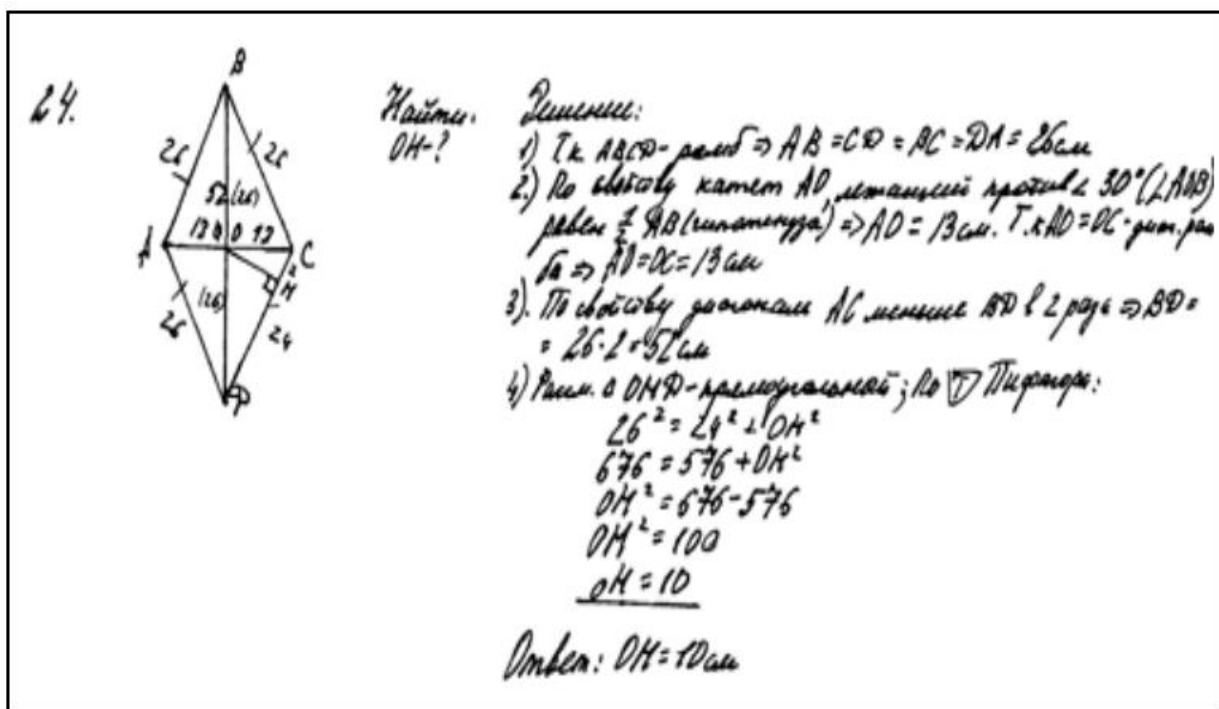 24.
B
26
26
52 (26)
13
0
13
A
C
2
H
(26)
26
24
D
Найти:
OH-?
Решение:
1) Т.к. ABCD-ромб ⇒ AB = CD = BC = DA = 26см
2.) По свойству катет AO, лежащий против ∠ 30° (∠AOB)
равен ½ AB (гипотенуза) ⇒ AO = 13 см. Т.к AO = OC - диаг. ром
ба ⇒ AO = OC = 13 см
3). По свойству диагонали AC меньше BD в 2 раза ⇒ BD =
= 26·2 = 52см
4) Рассм. Δ OHD - прямоугольный; По Т Пифагора:
26² = 24² + OH²
676 = 576 + OH²
OH² = 676 - 576
OH² = 100
OH = 10
Ответ: OH = 10см